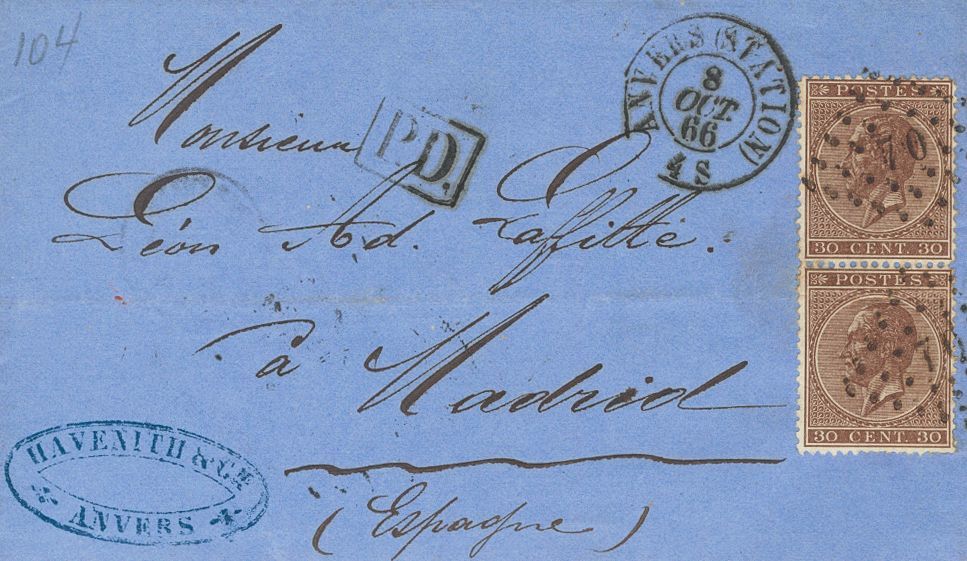 104
ANVERS (STATION)
8
OCT
66
4 S
P.D.
Monsieur
Léon Ad. Laffitte.
à Madrid
(Espagne)
HAVENITH & Cie
ANVERS
POSTES
70
30 CENT. 30
POSTES
30 CENT. 30